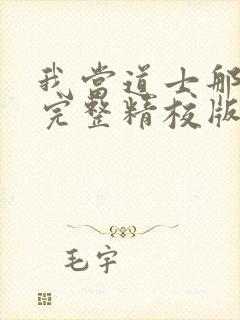 我当道士那
完整精校版
毛宇